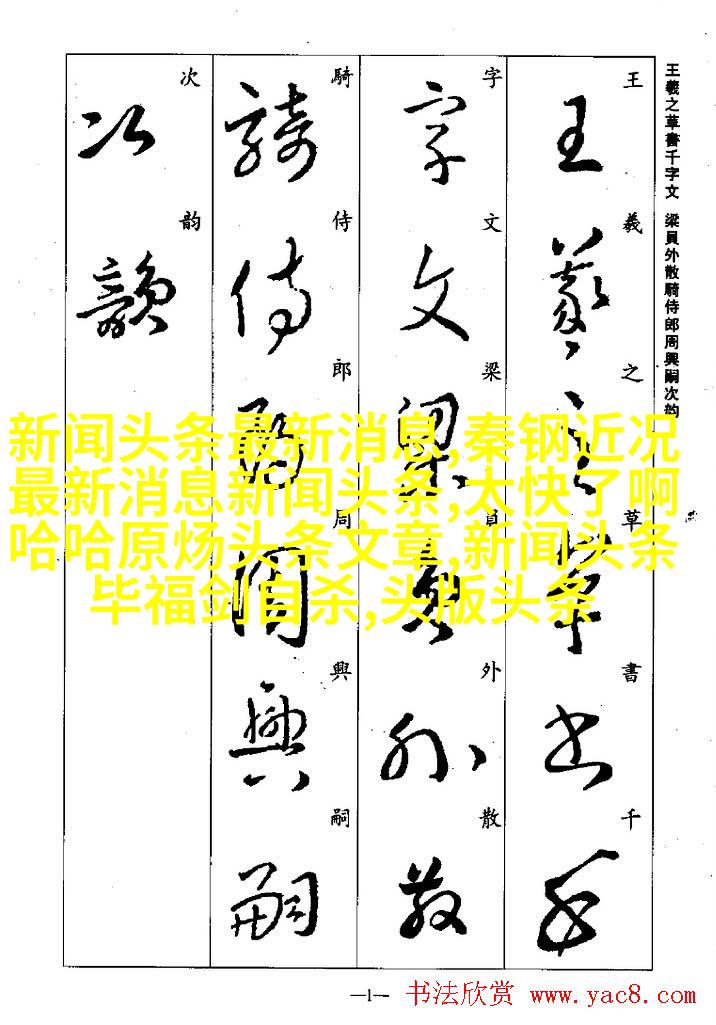 王羲之草書千字文 梁員外散騎侍郎周興嗣次韵
王羲之草書千
王羲之草書千
字文梁員外散
字文梁員外散
騎侍郎周興嗣
騎侍郎周興嗣
次韵
次韻
新闻头条最新消息,秦钢近况
最新消息新闻头条,太快了啊
哈哈原炀头条文章,新闻头条
毕福剑自杀,头版头条
—1—
书法欣赏 www.yac8.com